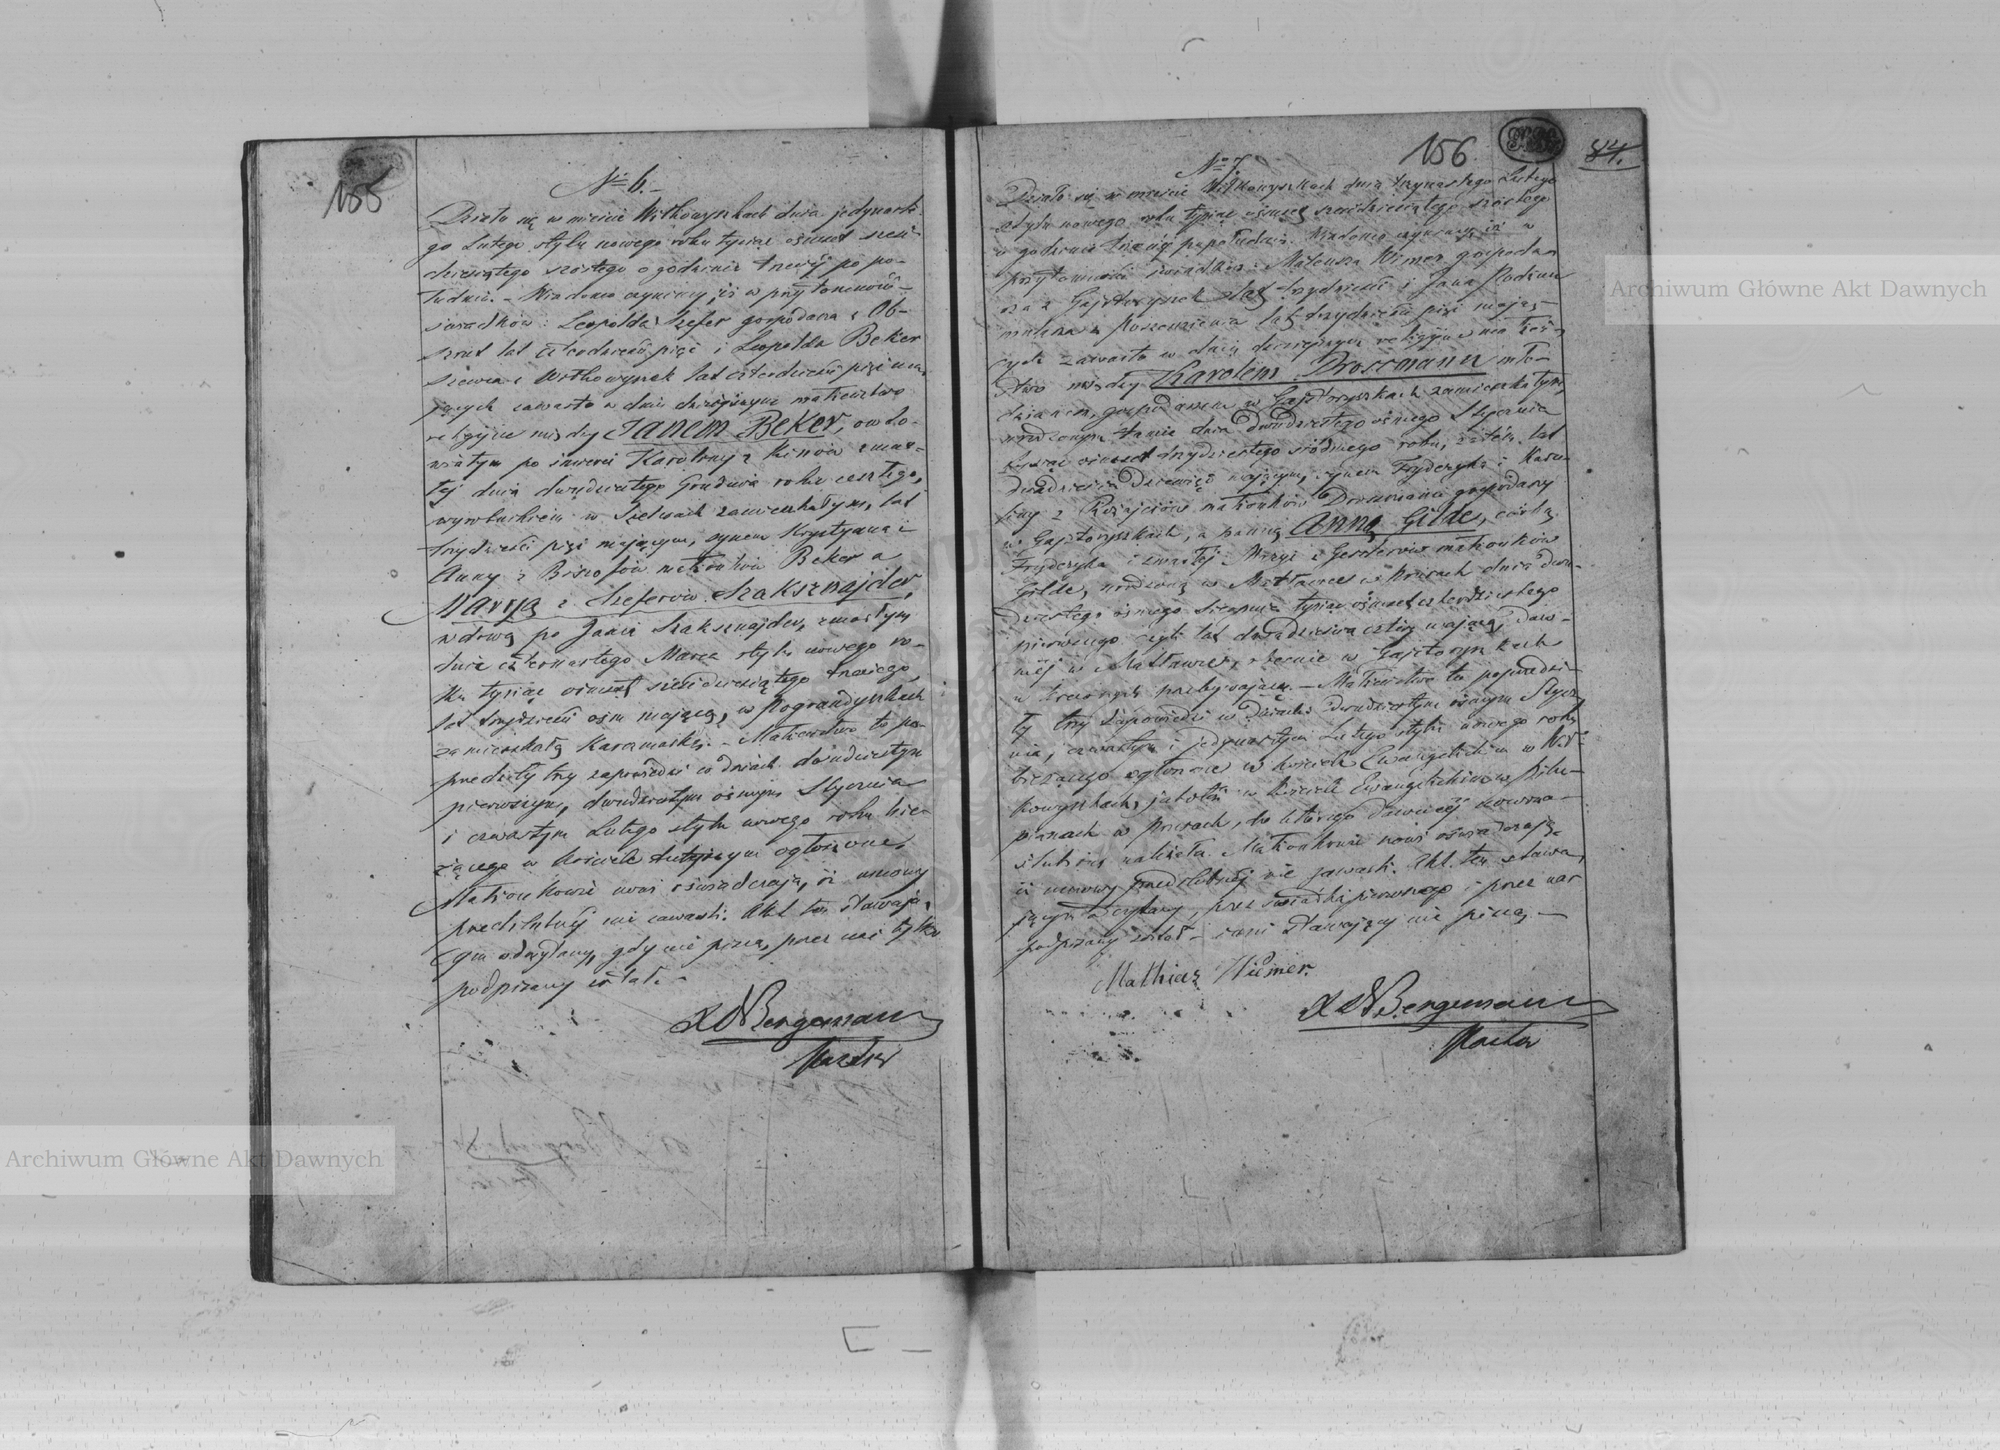 155
№ 6.
Działo się w mieście Wiłkowyszkach dnia jedynaste-
go Lutego stylu nowego roku tysiąc ośmset sześć-
dziesiątego szóstego o godzinie trzeciej po po-
łudniu. – Wiadomo czynimy, iż w przytomności
świadków: Leopolda Szefer gospodarza z Ob-
szrut lat czterdzieści pięć i Leopolda Beker
szewca z Wiłkowyszek lat czterdzieści pięć ma-
jących zawarto w dniu dzisiejszym małżeństwo
religijne między Janem Beker, owdo-
wiałym po śmierci Karoliny z zmar-
łej dnia dwudziestego Grudnia roku zeszłego,
wyrobnikiem w zamieszkałym, lat
trzydzieści pięć mającym, synem Krystyana i
Anny z małżonków Beker a
Maryą z Szeferów Szaksznajder,
wdową po Janie Szaksznajder, zmarłym
dnia czternastego Marca stylu nowego ro-
ku tysiąc ośmset sześćdziesiątego trzeciego,
lat trzydzieści ośm mającą, w Pograndyszkach
zamieszkałą – Małżeństwo to po-
przedziły trzy zapowiedzi w dniach dwudziestym
pierwszym, dwudziestym ósmym Stycznia
i czwartym Lutego stylu nowego roku bie-
żącego w kościele tutejszym ogłoszone.
Małżonkowie nowi oświadczają, iż umowy
przedślubnej nie zawarli. Akt ten stawają-
cym odczytany, gdy nie piszą, przez nas tylko
podpisany został. –
Bergemann
Pastor
156
84.
№ 7.
Działo się w mieście Wiłkowyszkach dnia trzynastego Lutego
stylu nowego roku tysiąc ośmset sześćdziesiątego szóstego
o godzinie trzeciej popołudniu. Wiadomo czynimy, iż w
przytomności świadków: Mateusza Wimer gospoda-
rza z lat trzydzieści i Jana
lat trzydzieści pięć mają-
cych zawarto w dniu dzisiejszym religijne małżeń-
stwo między Karolem Drosmann mło-
dzianem, gospodarzem w zamieszkałym,
urodzonym tamże dnia dwudziestego ósmego Stycznia
tysiąc ośmset trzydziestego siódmego roku, zatém lat
dwadzieścia dziewięć mającym, synem Fryderyka i Karo-
liny z małżonków Drosmann gospodarzy
w a panną Anną Gilde, córką
Fryderyka i zmarłej Maryi z małżonków
Gilde, urodzoną w w Prusach dnia dwu-
dziestego ósmego Sierpnia tysiąc ośmset czterdziestego
pierwszego czyli lat dwadzieścia cztéry mającą, daw-
niéj w obecnie w
przebywającą. – Małżeństwo to poprzedzi-
ły trzy zapowiedzi w dniach dwudziestym ósmym Stycz-
nia, czwartym i jedynastym Lutego stylu nowego roku
bieżącego ogłoszone w kościele Ewangelickim w Wił-
kowyszkach, jakoteż w kościele Ewangelickim w
w Prusach, do którego dawniéj nowoza-
ślubiona należała. Małżonkowie nowi oświadczają,
iż umowy przedślubnéj nie zawarli. Akt ten stawa-
jącym odczytany, przez świadka pierwszego i przez nas
podpisany został – inni stawający nie piszą. –
Mathias Wiemer.
Bergemann
Pastor
Archiwum Główne Akt Dawnych
Archiwum Główne Akt Dawnych